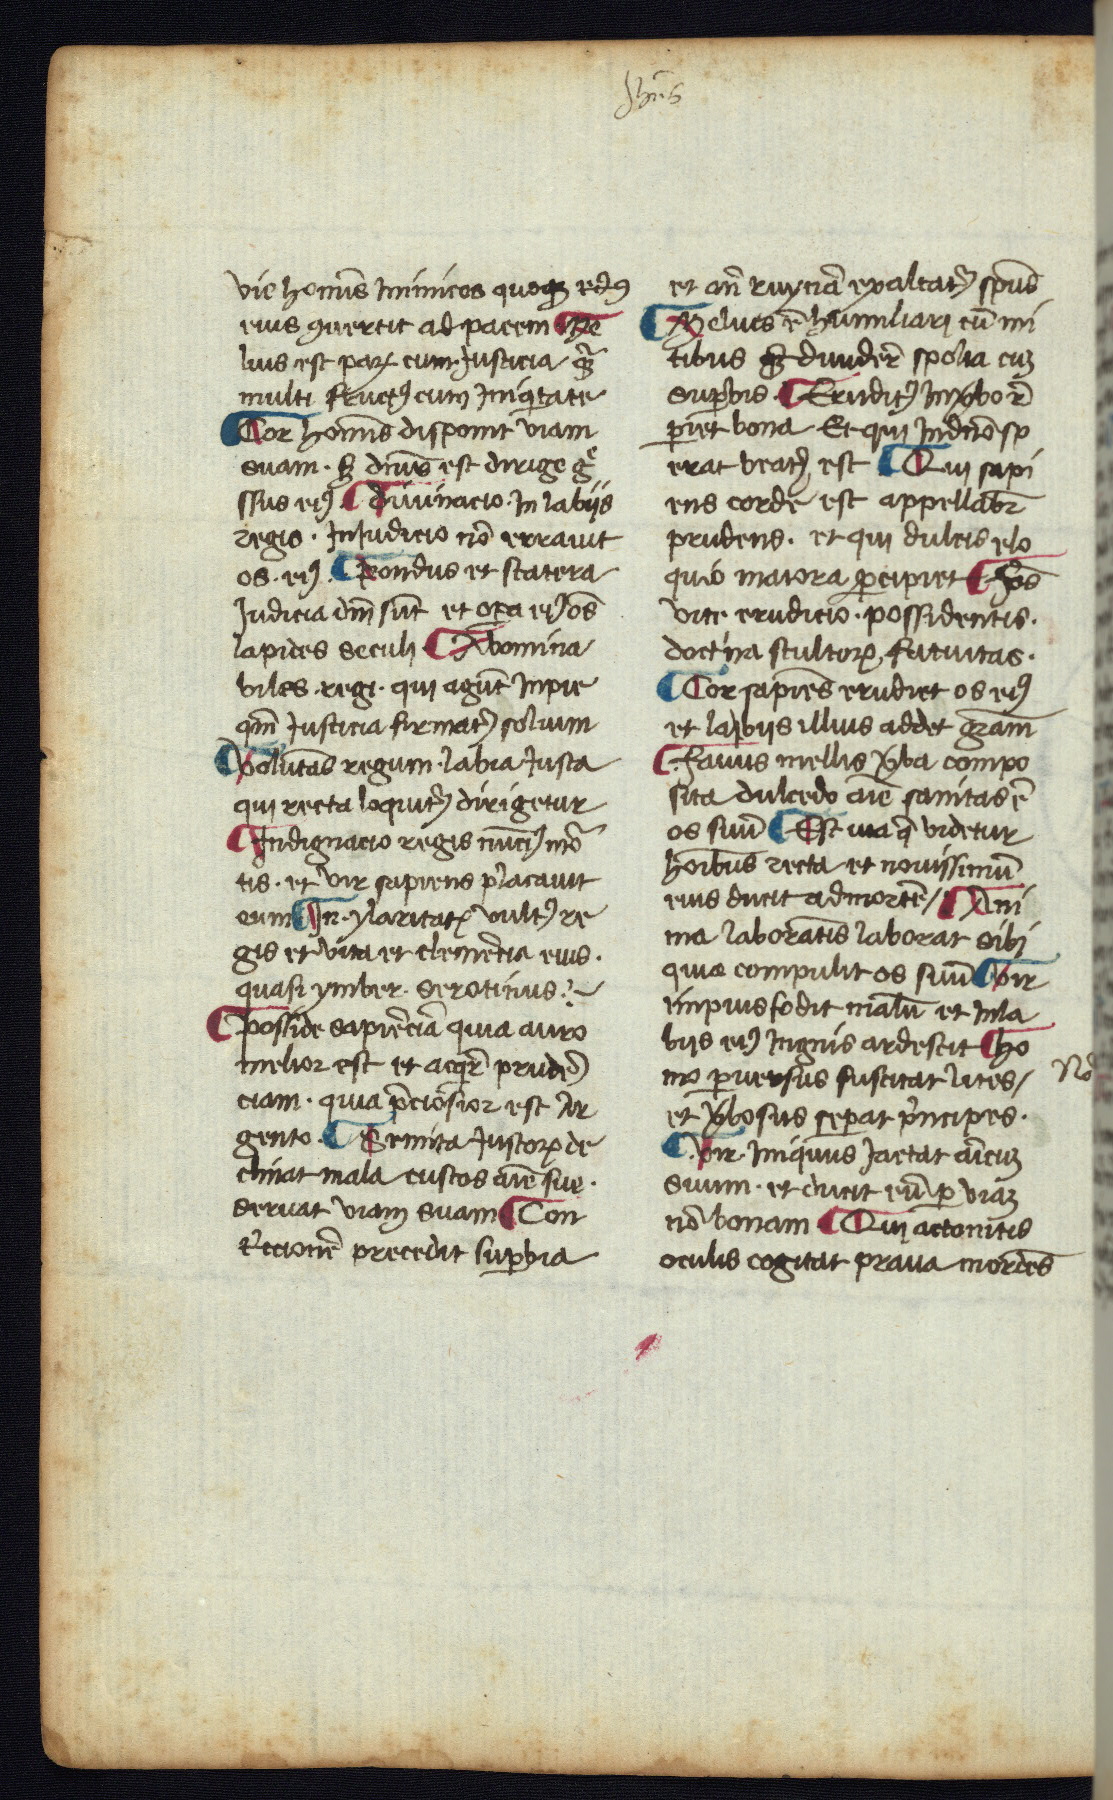 Jhūs
vie homīs Inimicos quoqꝫ redꝰ
eius ꝯuertit ad pacem ¶Me
lius est parꝝ cum Justicia qͣꝫ
multi fructꝰ cum Iniqͥtate
¶Cor homīs disponit viam
suam · sꝫ dn̄ius est dirige gͤ
ssus eiꝰ ¶diuinacio · In labijs
regis · In Judicio nō errauit
os · eiꝰ ¶Pondus et statera
Judicia dn̄i sūt et oīa eiꝰ oꝑa
lapides seculi ¶Abomina
biles · regi · qui agūt Inpie
qm̄ Justicia firmatꝰ solium
¶Volūtas regum · labia Justa
qui recta loquitꝰ dirigetur
¶Indignacio regis nūciꝰ mōr
tis · et vir sapiens placauit
eum ¶In · ylaritate vultꝰ re
gis et vita et clemēcia eius ·
quasi ymber · serotinus
¶posside sapiēciā quia auro
melior est et acqͥre prudē
ciam · quia p̄ciosior est Ar
gento · ¶Semita Justorꝝ de
clinat mala custos aīe sue ·
seruat viam suam ¶Con
t͛cionē precedit suꝑbia
et an̄ ruynā exaltatꝰ spūs
¶Melius ē humiliari cū mi
tibus qͣꝫ diuidere spolia cuꝫ
suꝑbis · ¶Eruditꝰ In ꝟbo re
ꝑiet bona Et qui In dn̄o sp
erat beatꝰ est ¶Qui sapi
ens corde est appellabr̄
prudens · et qui dulcis elo
quio maiora ꝑcipiet ¶Fōs
vite erudicio · possidentis ·
doctrina stultorꝝ fatuitas ·
¶Cor sapiēs erudiet os eiꝰ
et labijs illius addet gr̄am
¶Fauus mellis ꝟba compo
sita dulcedo aīe sanitas ē
os suū ¶Est uia q̄ videtur
hoībus recta et nouissimū
eius ducit ad mortē / ¶Ani
ma laborātis laborat sibi
quia compulit os suū ¶Vir
impius fodit malū et In la
bijs eiꝰ Ingnis ardescit ¶ho
mo ꝑuersus suscitat lites /
Nō
et ꝟbosus seꝑat pͥncipes ·
¶Vir · Iniquus Jactat aīcuꝫ
suum · et ducit eū ꝑ viaꝫ
nō bonam ¶Qui attonitis
oculis cogitat praua mordēs